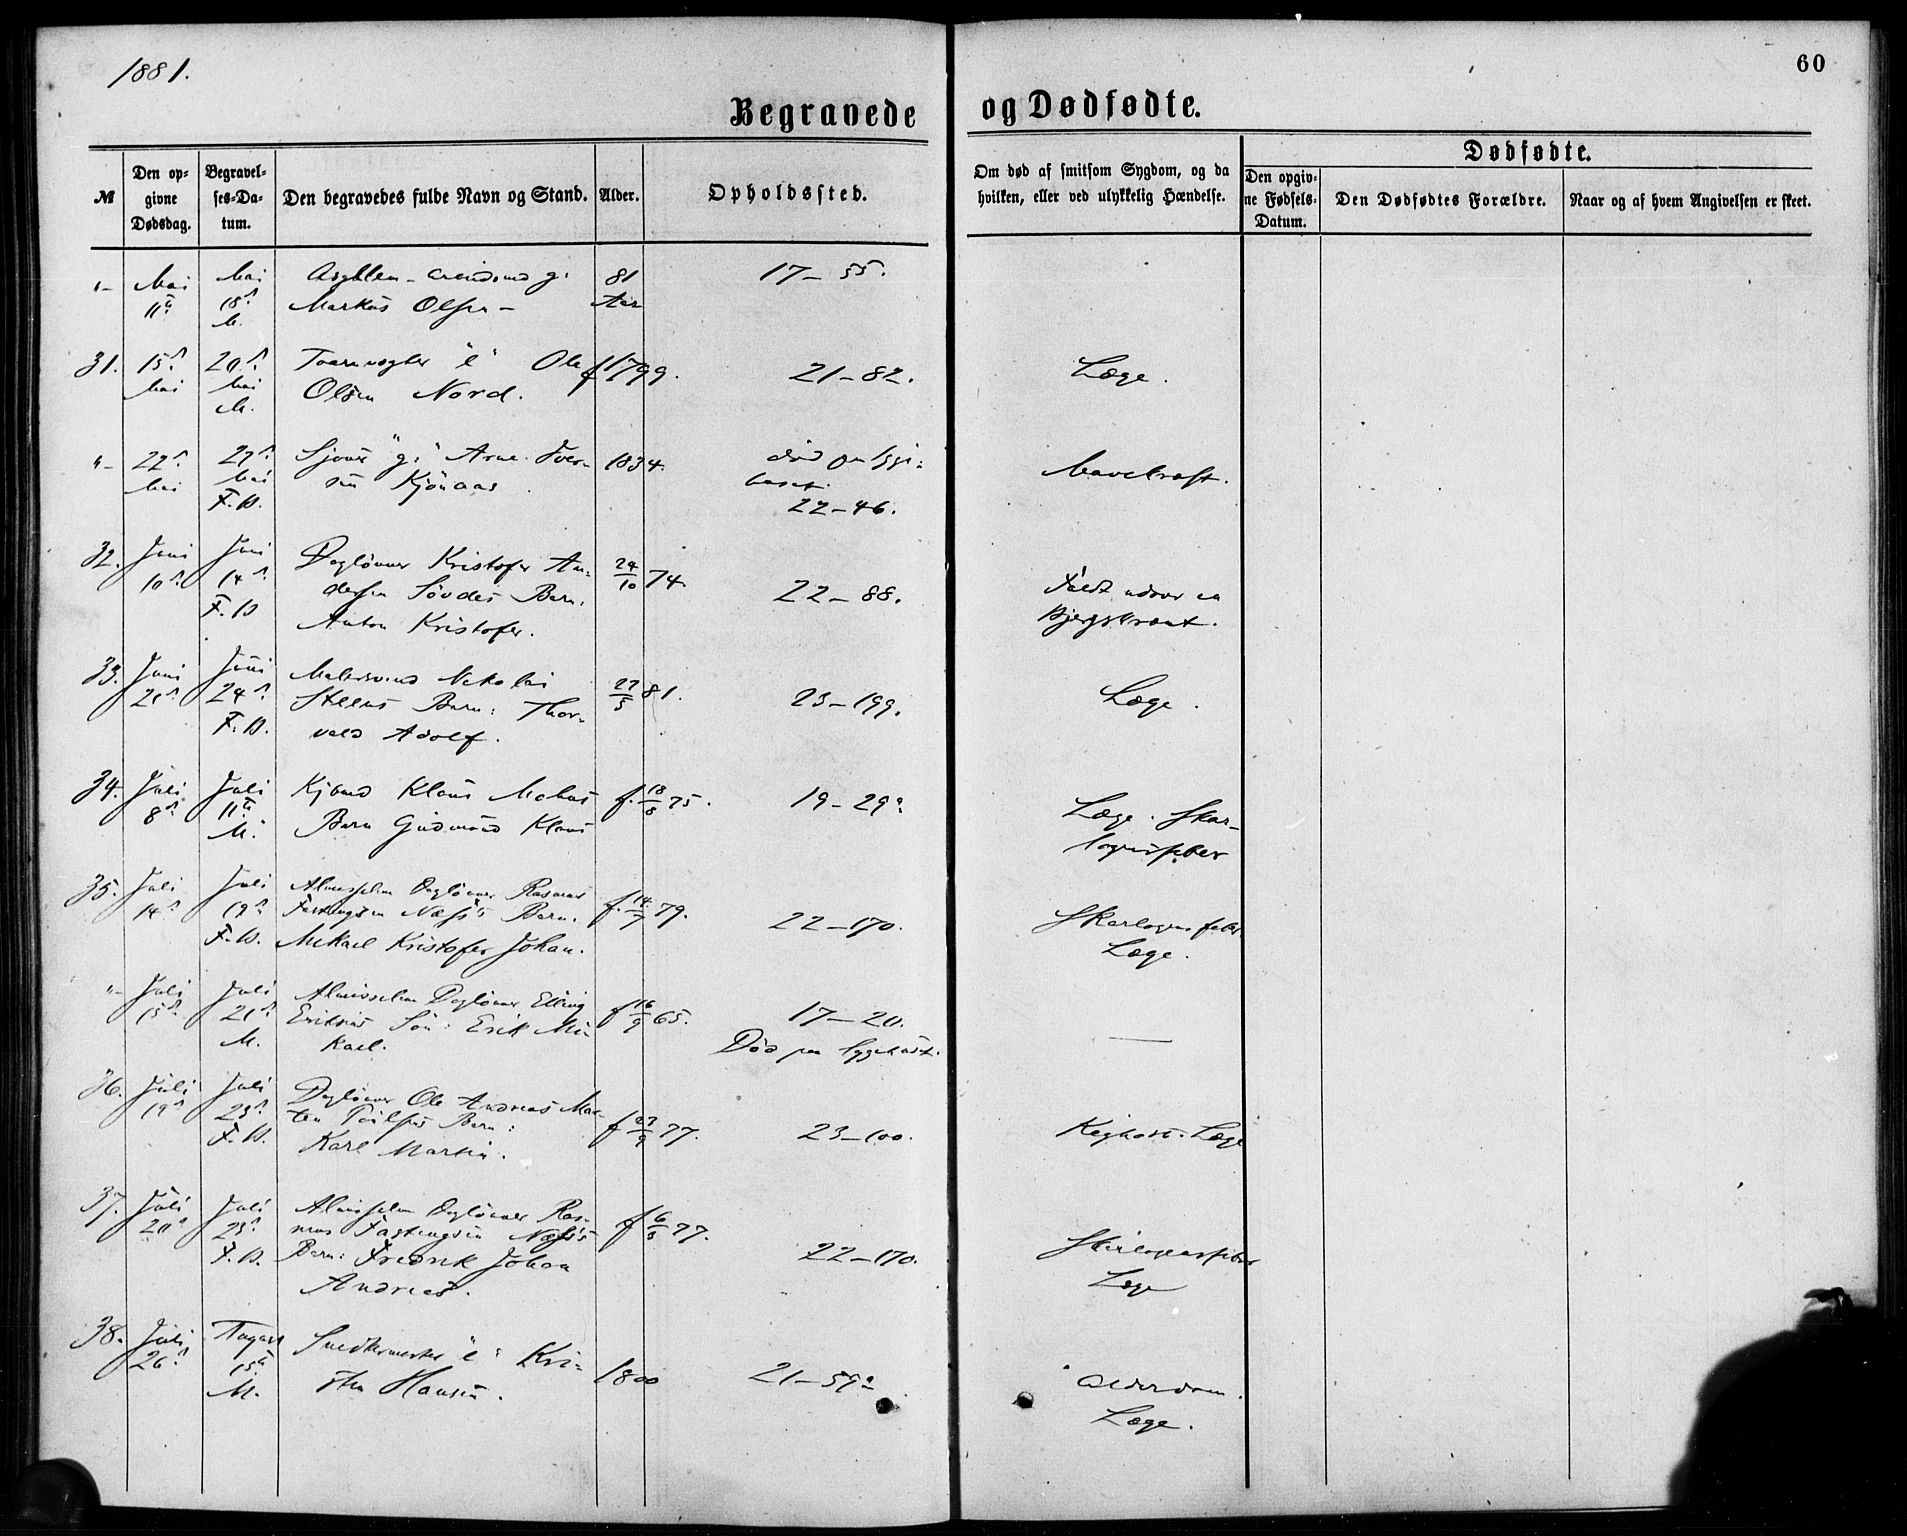 1881.
60
Begravede og Dødfødte.
№
Den opgivne Dødsdag.
Begravelses-Datum.
Den begravedes fulde Navn og Stand.
Alder.
Opholdssted.
Om død af smitsom Sygdom, og da hvilken, eller ved ulykkelig Hændelse.
Dødfødte.
Den opgivne Fødsels-Datum.
Den Dødfødtes Forældre.
Naar og af hvem Angivelsen er skeet.
"- Mai 11te Mai 18de M.
g:
Markus Olsen -
81 Aar
17-55.
31. 15de Mai 20de Mai M.
Taarnvægter "e" Ole
Olsen Nord.
f 1799.
21-82.
Læge.
"- 22de Mai 27de Mai F.W.
"g:" Arne Iver-
sen Kjønaas
1834.
død paa Syge-
huset.
22-46.
Mavekræft.
32. Juni 10de Juni 14de F.W.
Dagløner Kristofer An-
dersen Søvdes Barn:
Anton Kristofer.
24/10 74.
22-88.
Faldt udover en
Bjergskrænt.
33. Juni 21de Juni 24de F.W.
Malersvend Nikolai
Steens Barn: Thor-
vald Adolf.
27/5 81.
23-199.
Læge.
34. Juli 8de Juli 11te M.
Kjbmd Klaus Mohns
Barn Gudmund Klaus
f. 18/8 75.
19-29a
Læge. Skar-
lagensfeber
35. Juli 14de Juli 19de F.W.
Almisselem Dagløner Rasmus
Fastingsen Næss's Barn:
Mikael Kristofer Johan.
f. 14/7 79.
22-170.
Skarlagensfeber
Læge.
"- Juli 15de Juli 21de M.
Almisselem Dagløner Elling
Eriksens Søn: Erik Mi-
kael.
f 16/9 65.
17-20.
Død paa Sygehuset.
36. Juli 19de Juli 23de F.W.
Dagløner Ole Andreas Mor-
ten Barn:
Karl Martin.
f 27/9 77.
23-100.
Kighoste. Læge
37. Juli 20de Juli 23de F.W.
Almisselem Dagløner Ras-
mus Fastingsen Næss's
Barn: Fredrik Johan
Andreas.
f 6/8 77.
22-170.
Skarlagensfeber
Læge
38. Juli 26de August 15de M.
Snedkermester "e" Kri-
sten Hansen.
1800
21-59a
Alderdom.
Læge.